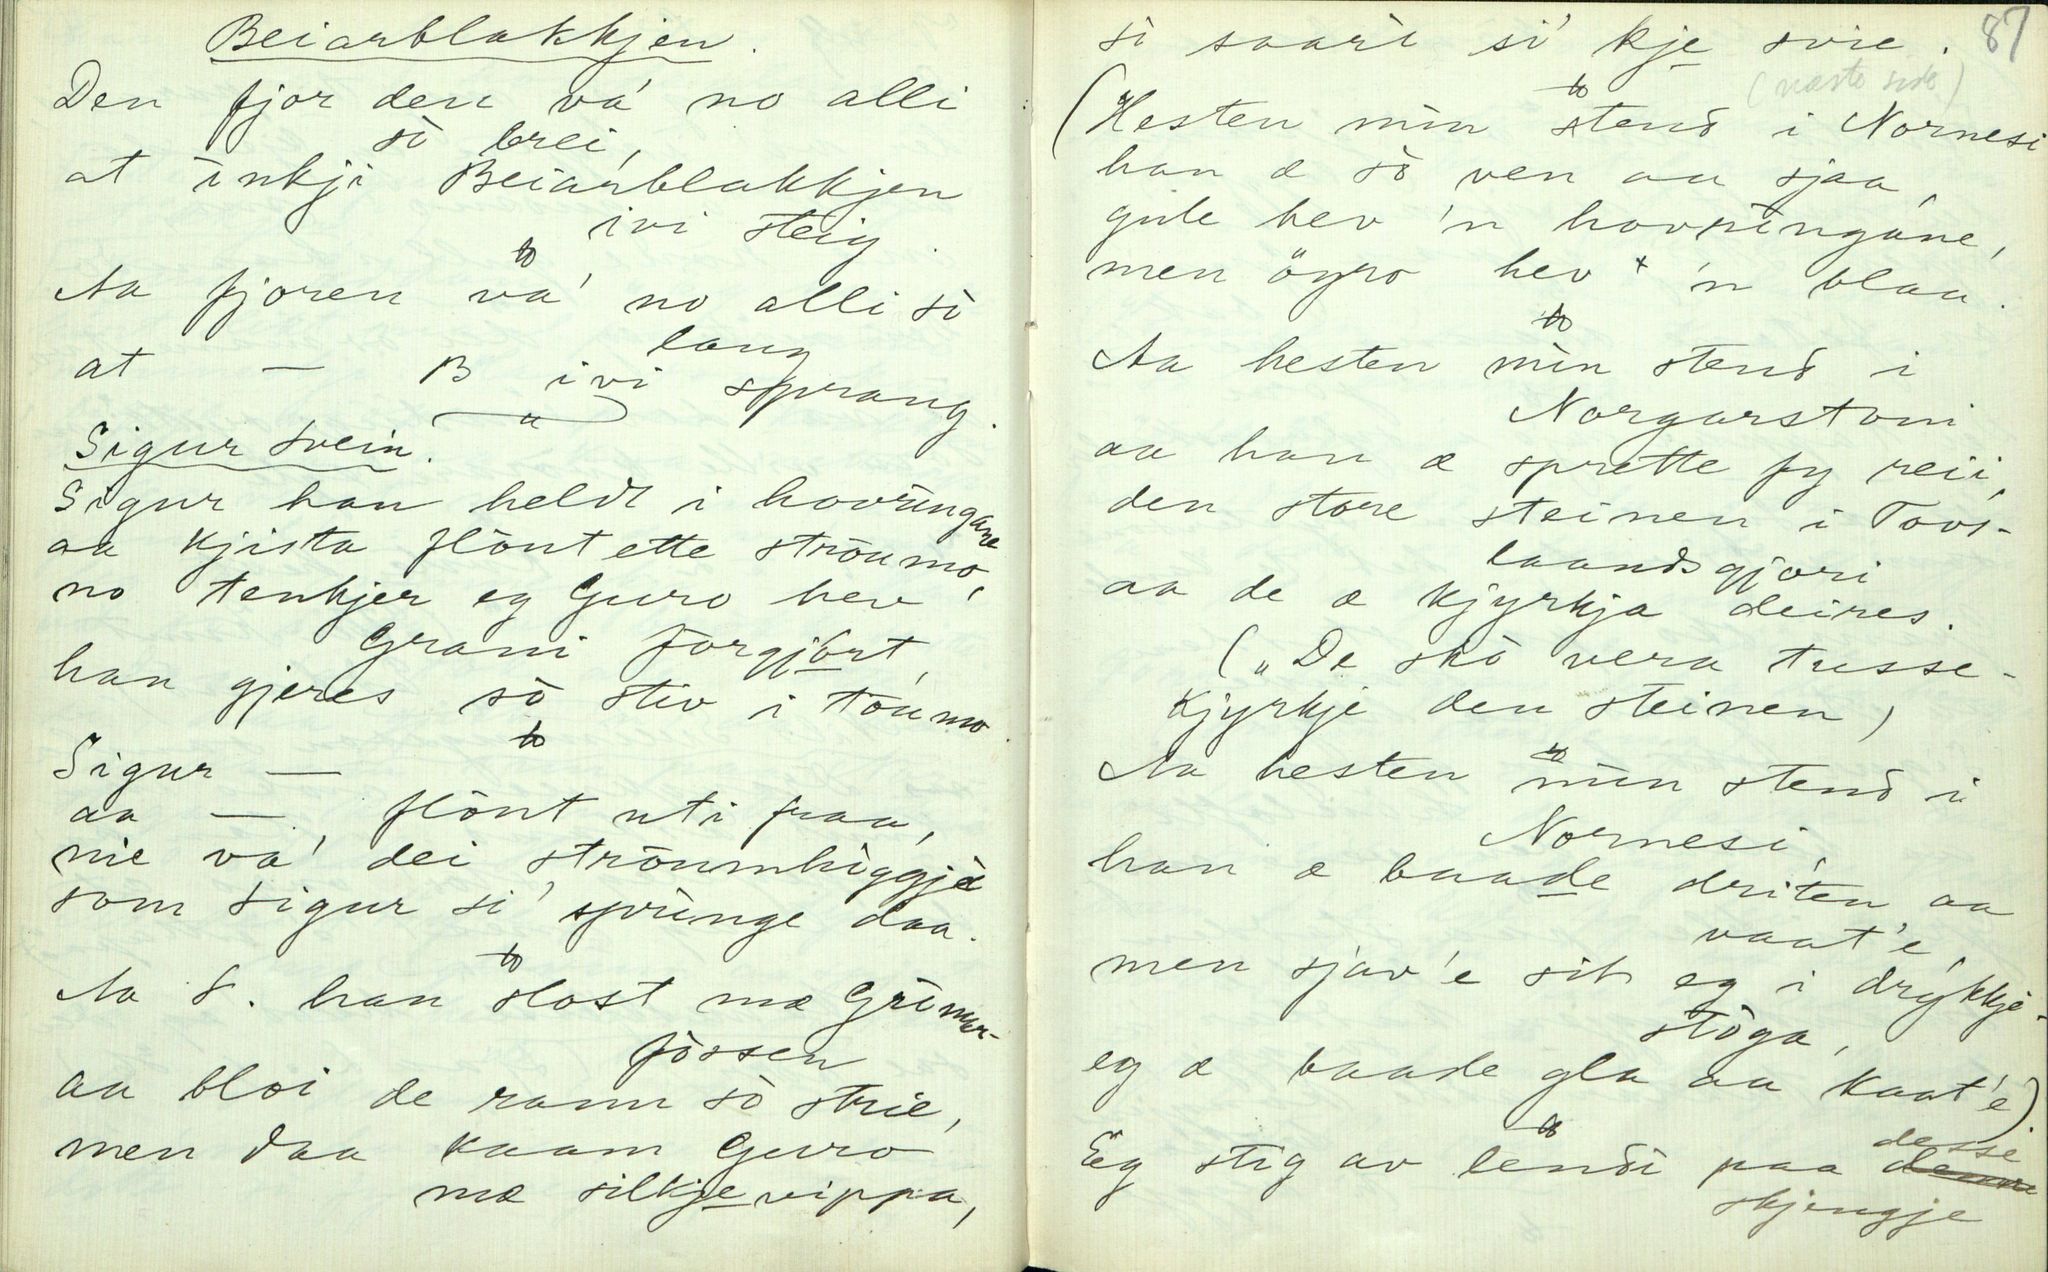 Beiarblakkjen.
Den fjor den va' no alli
sò brei,
at inkji Beiarblakkjen
ivi steig.
Aa fjoren va' no alli sò
lang
at — B ivi sprang.
Sigur svein.
Sigur han heldt i hovringane
aa kjista flönt ette ströumo,
no tenkjer eg Guro hev
Grani forgjort,
han gjeres sò stiv i töumo.
Sigur —
aa — flönt uti fraa,
nie va' dei ströumhiggjà
som Sigur si' sprünge daa.
Aa S. han slost mæ Grimar-
fössen
aa bloi de rann sò strie,
men daa kaam Guro
mæ silkjevippa,
87
si saari si' kje svie.
(næste side)
(Hesten min stend i Nornesi
han æ sò ven aa sjaa,
gule hev 'n hovringane,
men ögro hev 'n blaa.
Aa hesten min stend i
Norgarstoni
aa han æ sprette fy reii,
den store steinen i Tovs-
laandsgjori
aa de æ kjyrkja deires.
("De skò vera tusse-
kjyrkje den steinen)
Aa hesten min stend i
Nornesi,
han æ baade driten aa
vaat'e,
men sjav'e sit eg i drykkje-
stòga,
eg æ baade gla aa kaat'e).
Eg stig av lendi paa desse
skjengje